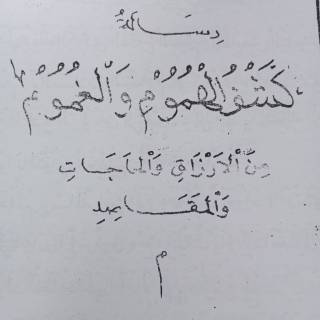 رِسَالَةُ
كَشْفُ الْهُمُوْمِ وَالْغُمُوْمِ
مِنَ الْأَرْزَاقِ وَالْحَاجَاتِ
وَالْمَقَاصِدِ
م